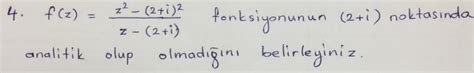 4. f(z) = \frac{z² - (2+i)²}{z - (2+i)} fonksiyonunun (2+i) noktasında
analitik olup olmadığını belirleyiniz.